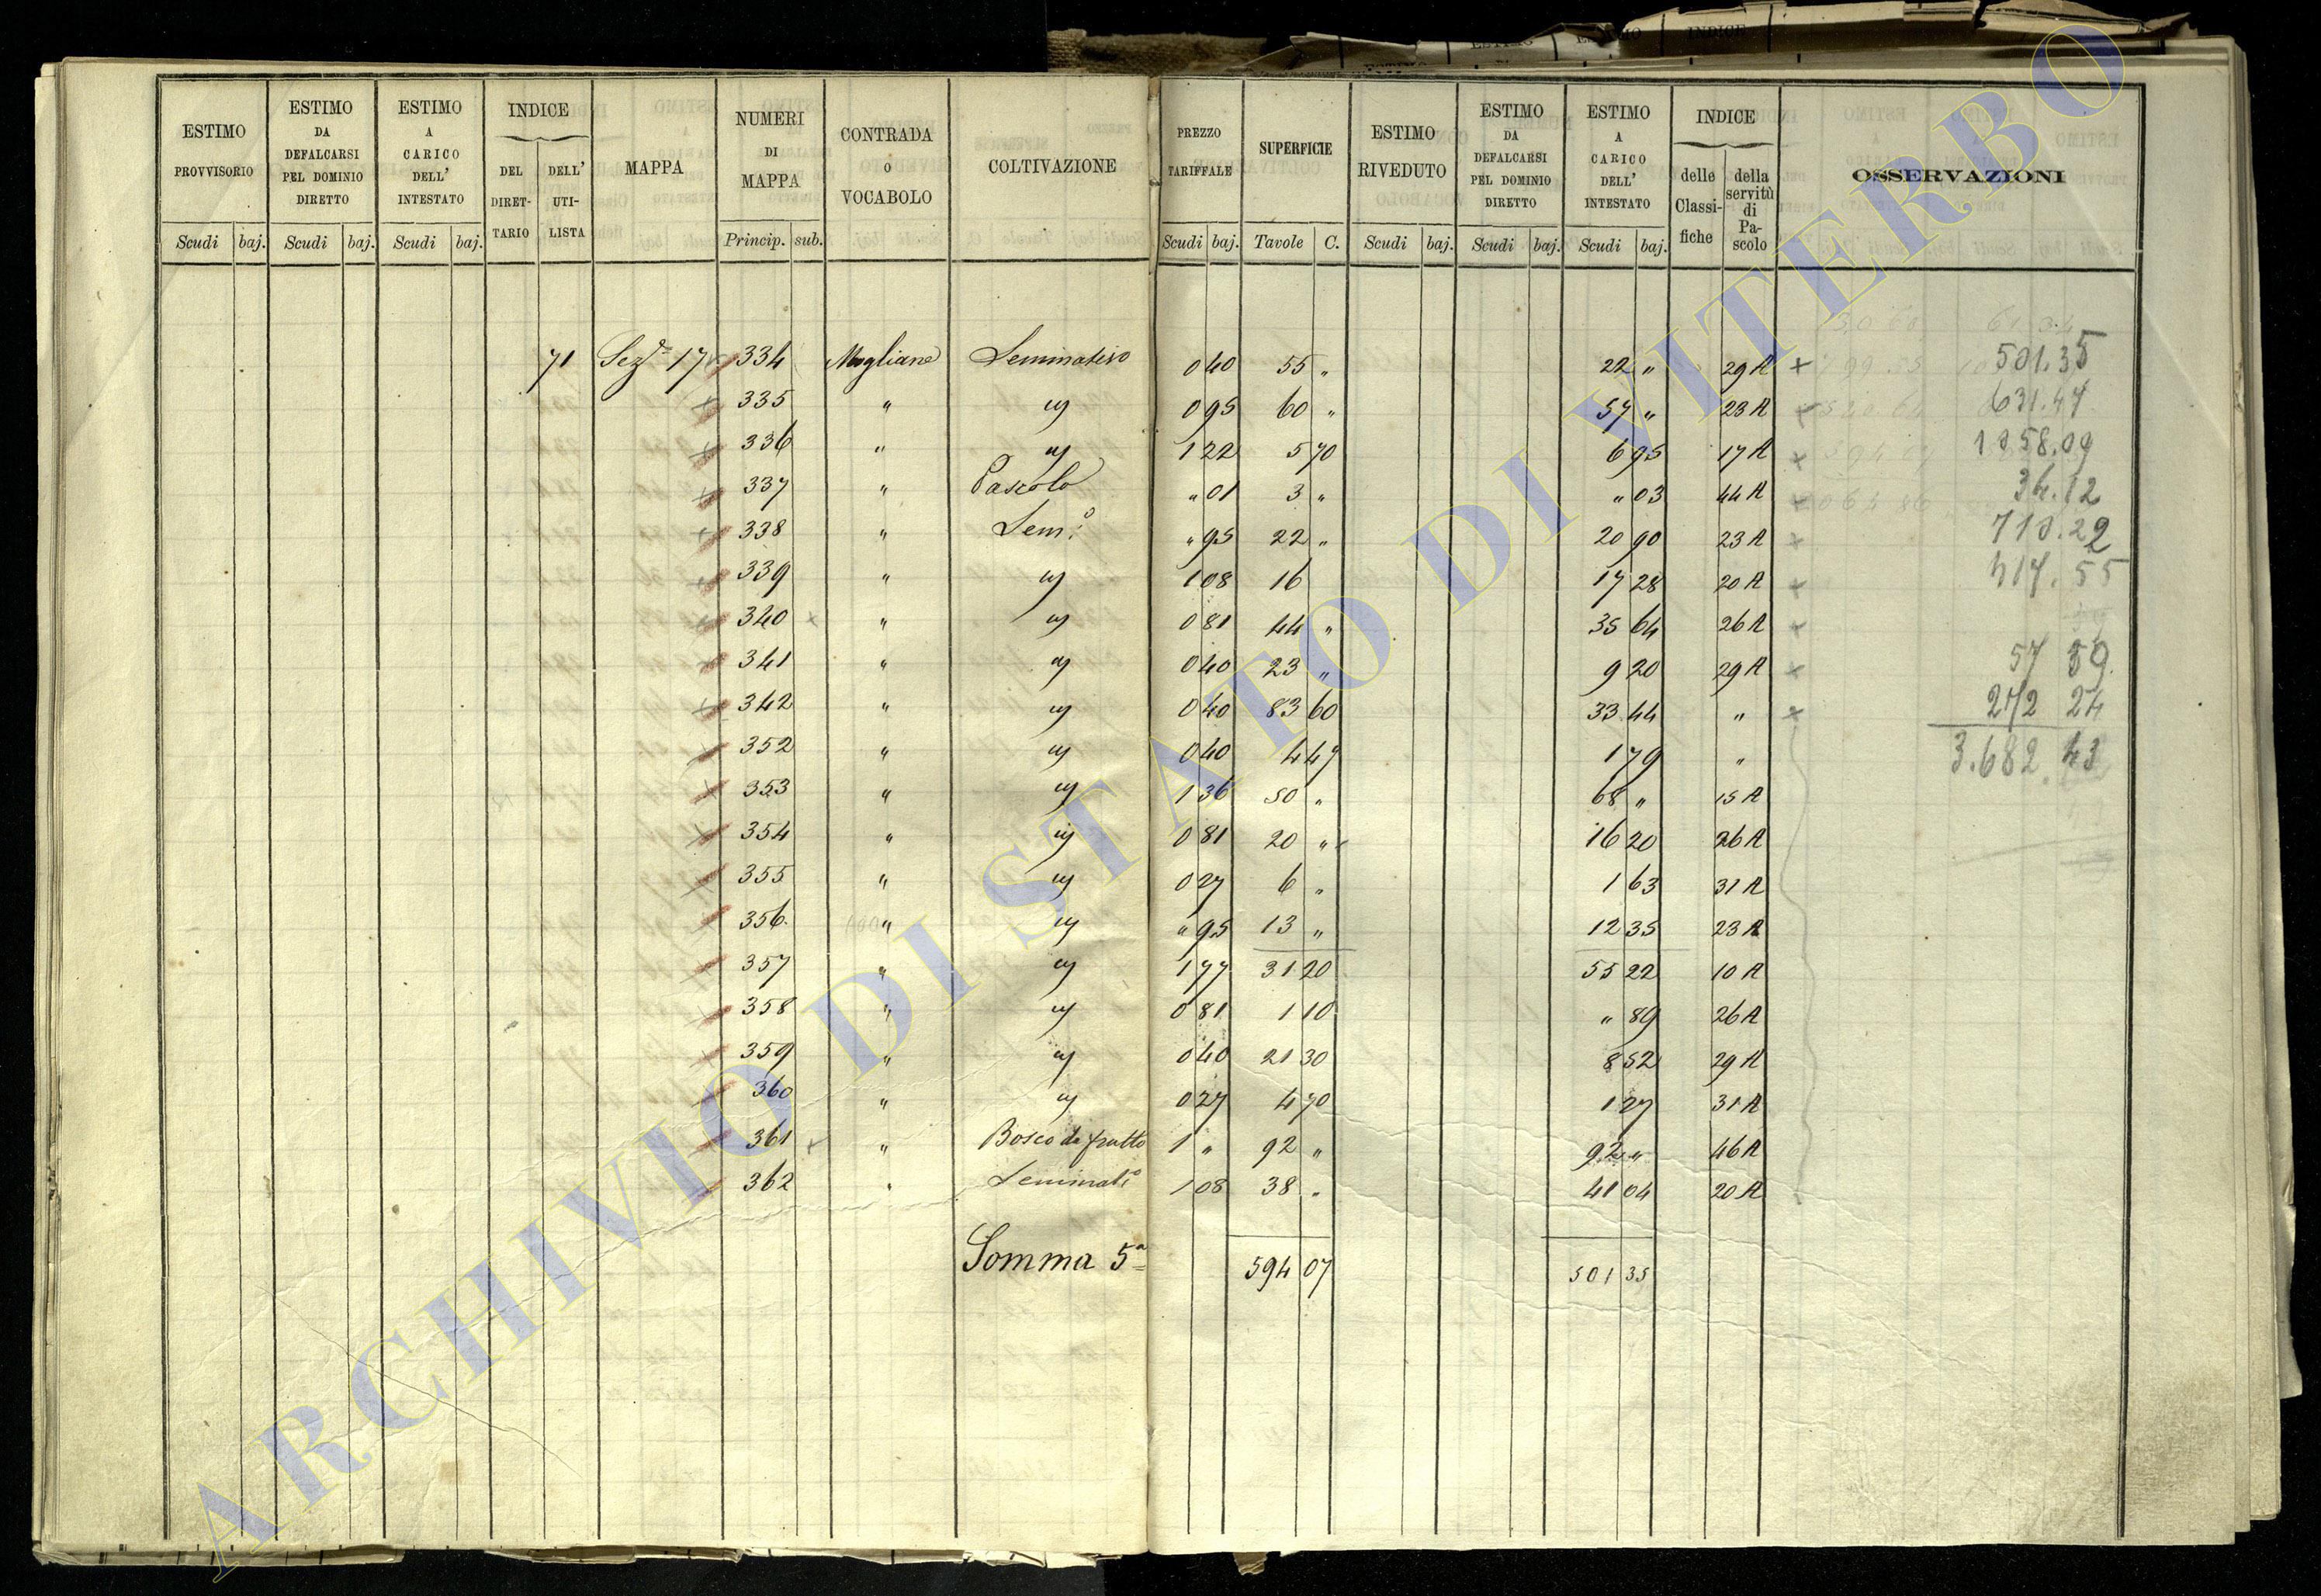 ESTIMO PROVVISORIO | ESTIMO DA DEFALCARSI PEL DOMINIO DIRETTO | ESTIMO A CARICO DELL' INTESTATO | INDICE | MAPPA | NUMERI DI MAPPA | CONTRADA o VOCABOLO | COLTIVAZIONE | PREZZO TARIFFALE | SUPERFICIE | ESTIMO RIVEDUTO | ESTIMO DA DEFALCARSI PEL DOMINIO DIRETTO | ESTIMO A CARICO DELL' INTESTATO | INDICE | OSSERVAZIONI
DEL DIRET-TARIO | DELL' UTI-LISTA | delle Classi-fiche | della servitù di Pa-scolo
Scudi baj. | Scudi baj. | Scudi baj. | Princip. sub. | Scudi baj. | Tavole C. | Scudi baj. | Scudi baj. | Scudi baj.
71 Sez.e 17 334 Magliano Seminativo 0 40 55 " 22 " 29 A + 501.35
+ 335 " id 0 95 60 " 57 " 23 A + 631.47
+ 336 " id 1 22 5 70 6 95 17 A + 1058.09
+ 337 " Pascolo " 01 3 " " 03 44 A + 34.12
+ 338 " Sem:o " 95 22 " 20 90 23 A + 710.22
+ 339 " id 1 08 16 17 28 20 A + 417.55
+ 340 + " id 0 81 44 " 35 64 26 A +
+ 341 " id 0 40 23 " 9 20 29 A + 57 59
+ 342 " id 0 40 83 60 33 44 " + 272 24
352 " id 0 40 4 47 1 79 " 3.682 43
+ 353 " id 1 36 50 " 68 " 15 A
+ 354 " id 0 81 20 " 16 20 26 A
355 " id 0 27 6 " 1 63 31 A
356. " id " 95 13 " 12 35 23 A
357 " id 1 77 31 20 55 22 10 A
358 " id 0 81 1 10 " 89 26 A
359 " id 0 40 21 30 8 52 29 A
360 " id 0 27 4 70 1 27 31 A
361 + " Bosco da frutto 1 " 92 " 92 " 46 A
362 " Seminat:o 1 08 38 " 41 04 20 A
Somma 5a 594 07 501 35
ARCHIVIO DI STATO DI VITERBO